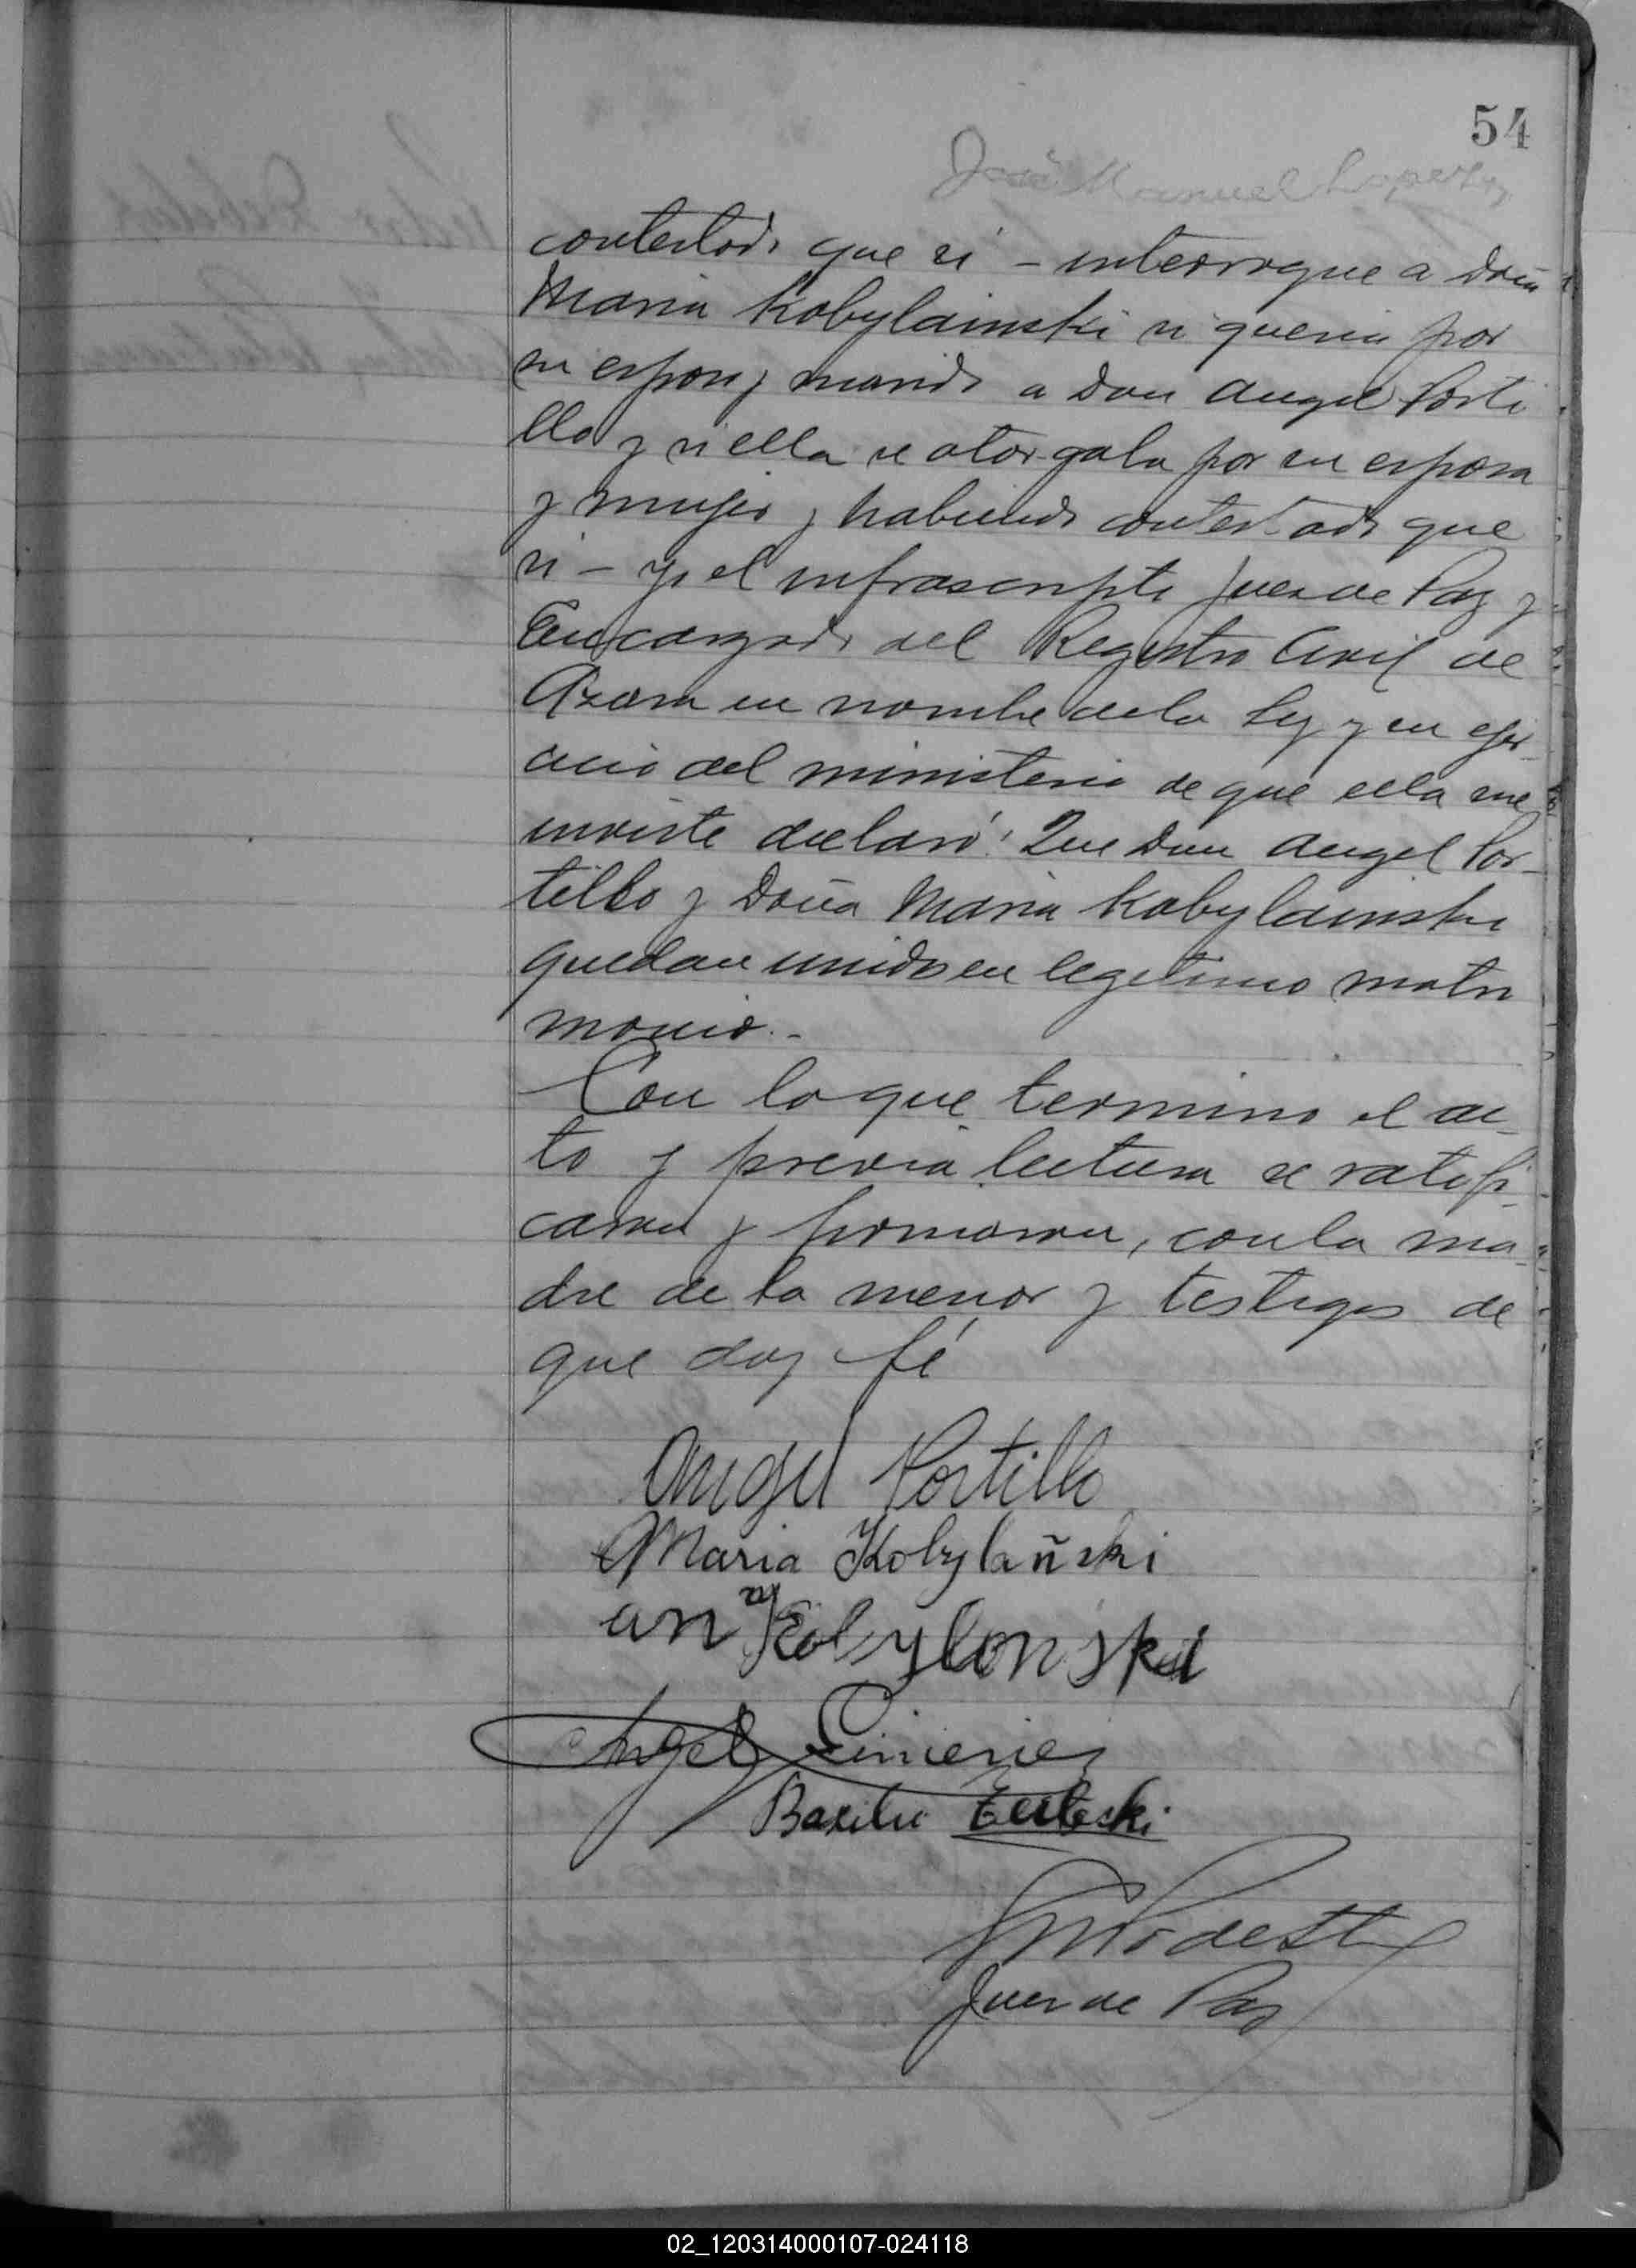 54
José Manuel Lopez
contestado que si – interrogue a Doña
Maria Kobylainski si queria por
su esposo y marido a Don Angel Porti
llo y si ella se otorgaba por su esposa
y mujer y habiendo contestado que
si – yo el infrascripto Juez de Paz y
Encargado del Registro Civil de
Azara en nombre de la Ley y en ejer-
cicio del ministerio de que ella me
inviste declaró: Que Don Angel Por-
tillo y Doña Maria Kobylainski
quedan unidos en legitimo matri
monio.-
Con lo que termino el ac-
to y previa lectura se ratifi-
caron y firmaron, con la ma-
dre de la menor y testigos de
que doy fé
Angel Portillo
Maria Kobylañski
an Kobylonski
Angel Gimenez
Basilio
Juez de Paz
02_120314000107-024118